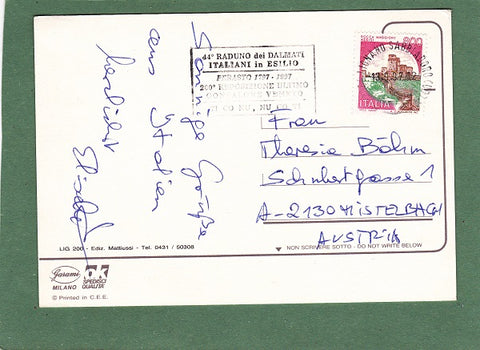 Sonnige Grüße
aus Italien
herzlichst
44° RADUNO dei DALMATI
ITALIANI in ESILIO
PERASTO 1797 - 1997
200° DEPOSIZIONE ULTIMO
GONFALONE VENETO
TI CO NU, NU CO TI
ITALIA
Frau
Theresia Böhm
Schubertgasse 1
A-2130 MISTELBACH
AUSTRIA
LIG 200 - Ediz. Mattiussi - Tel. 0431 / 50308
NON SCRIVERE SOTTO - DO NOT WRITE BELOW
Garami
MILANO
OK
SPEDISCI
QUALITÀ
© Printed in C.E.E.